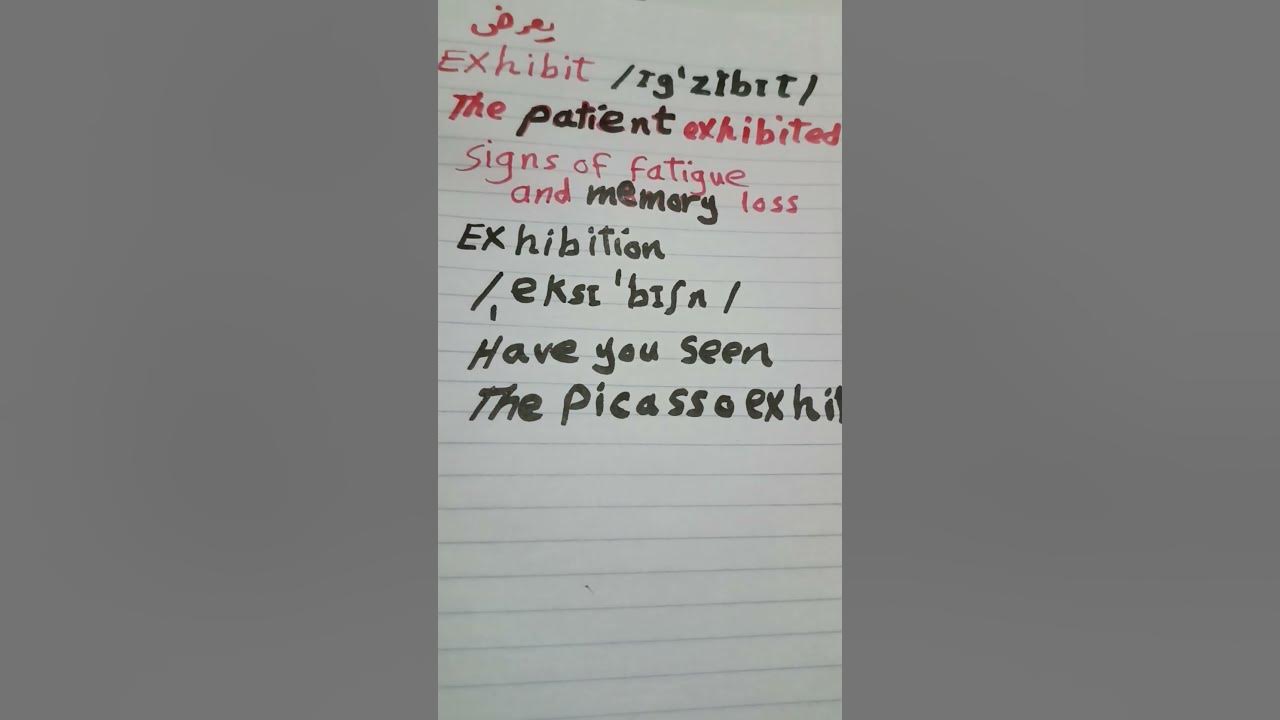 يعرض
Exhibit /ɪg'zɪbɪt/
The patient exhibited
Signs of fatigue
and memory loss
Exhibition
/ˌeksɪ'bɪʃn/
Have you seen
The Picasso exhi